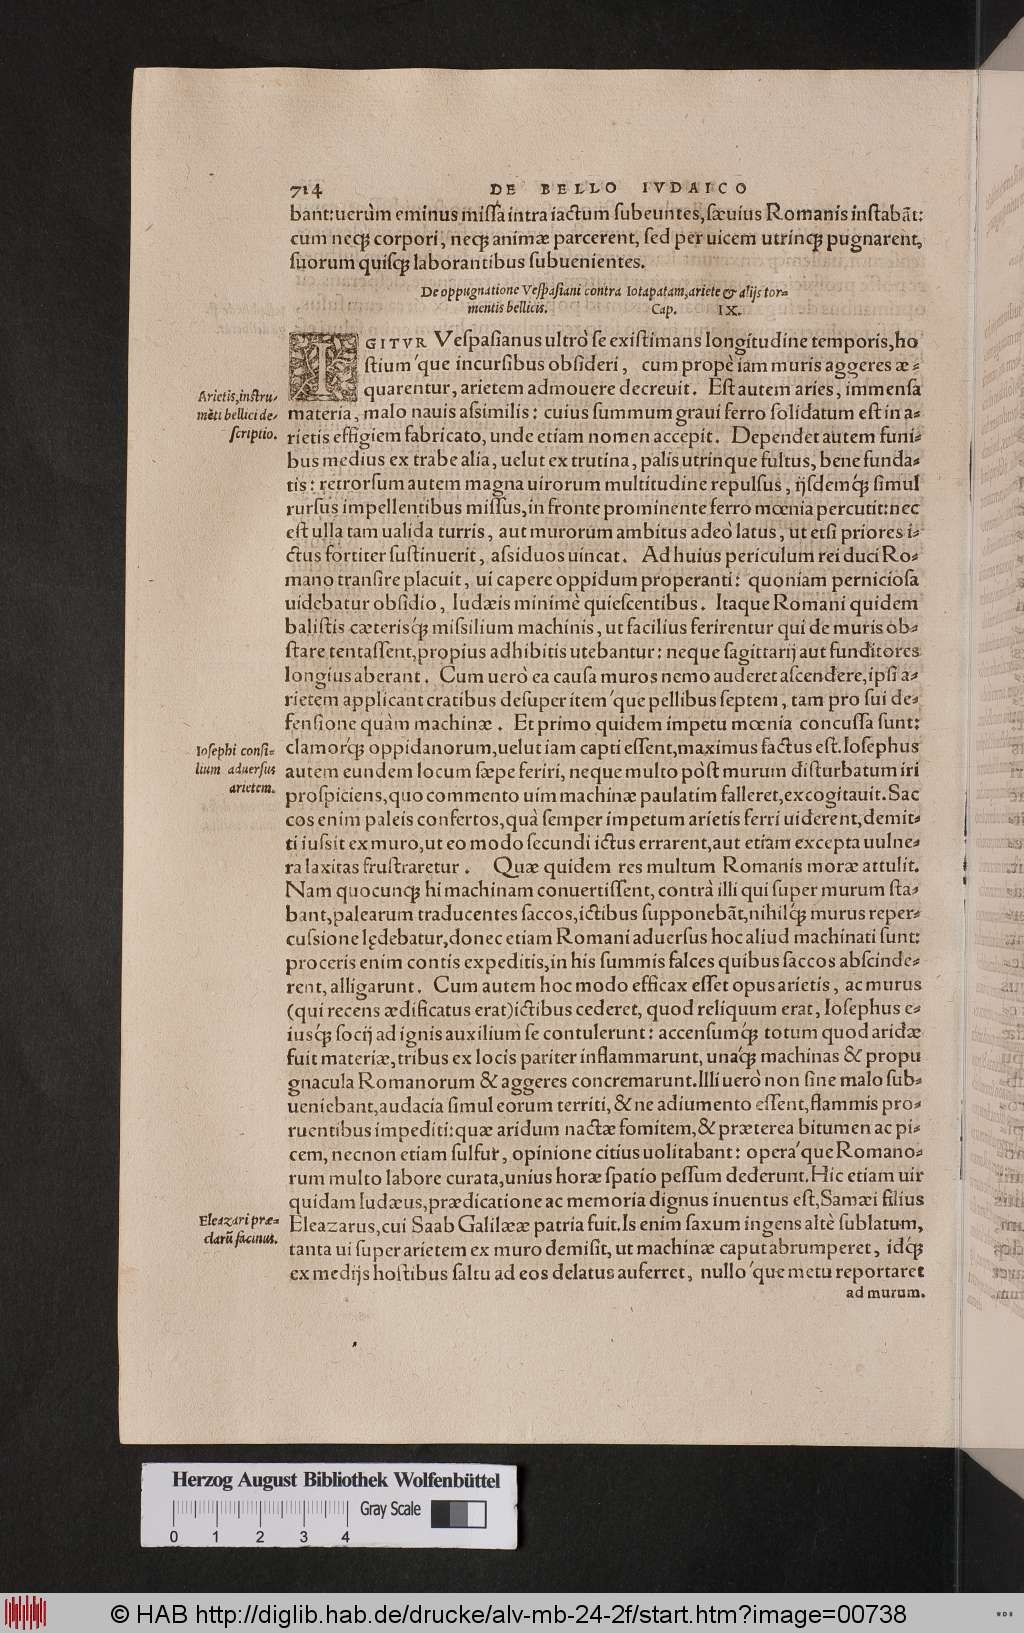 714 DE BELLO IVDAICO
bant: uerùm eminus miſſa intra iactum ſubeuntes, ſæuius Romanis inſtabãt:
cum neqꝫ corpori, neqꝫ animæ parcerent, ſed per uicem utrinqꝫ pugnarent,
ſuorum quiſqꝫ laborantibus ſubuenientes.
De oppugnatione Veſpaſiani contra Iotapatam, ariete & alijs tor⸗
mentis bellicis. Cap. IX.
IGITVR Veſpaſianus ultrò ſe exiſtimans longitudine temporis, ho
ſtium´que incurſibus obſideri, cum propè iam muris aggeres æ⸗
quarentur, arietem admouere decreuit. Eſt autem aries, immenſa
Arietis, inſtru⸗
mẽti bellici de⸗
ſcriptio.
materia, malo nauis aſsimilis: cuius ſummum graui ferro ſolidatum eſt in a⸗
rietis effigiem fabricato, unde etiam nomen accepit. Dependet autem funi⸗
bus medius ex trabe alia, uelut ex trutina, palis utrinque fultus, bene funda⸗
tis: retrorſum autem magna uirorum multitudine repulſus, ijsdem´qꝫ ſimul
rurſus impellentibus miſſus, in fronte prominente ferro mœnia percutit: nec
eſt ulla tam ualida turris, aut murorum ambitus adeò latus, ut etſi priores i⸗
ctus fortiter ſuſtinuerit, aſsiduos uincat. Ad huius periculum rei duci Ro⸗
mano tranſire placuit, ui capere oppidum properanti: quoniam pernicioſa
uidebatur obſidio, Iudæis minimè quieſcentibus. Itaque Romani quidem
baliſtis cæteris´qꝫ miſsilium machinis, ut facilius ferirentur qui de muris ob⸗
ſtare tentaſſent, propius adhibitis utebantur: neque ſagittarij aut funditores
longius aberant. Cum uerò ea cauſa muros nemo auderet aſcendere, ipſi a⸗
rietem applicant cratibus deſuper item´que pellibus ſeptem, tam pro ſui de⸗
fenſione quàm machinæ. Et primo quidem impetu mœnia concuſſa ſunt:
Ioſephi conſi⸗
lium aduerſus
arietem.
clamor´qꝫ oppidanorum, uelut iam capti eſſent, maximus factus eſt. Ioſephus
autem eundem locum ſæpe feriri, neque multo pòſt murum diſturbatum iri
proſpiciens, quo commento uim machinæ paulatim falleret, excogitauit. Sac
cos enim paleis confertos, quà ſemper impetum arietis ferri uiderent, demit⸗
ti iuſsit ex muro, ut eo modo ſecundi ictus errarent, aut etiam excepta uulne⸗
ra laxitas fruſtraretur. Quæ quidem res multum Romanis moræ attulit.
Nam quocunqꝫ hi machinam conuertiſſent, contrà illi qui ſuper murum ſta⸗
bant, palearum traducentes ſaccos, ictibus ſupponebãt, nihil´qꝫ murus reper⸗
cuſsione lędebatur, donec etiam Romani aduerſus hoc aliud machinati ſunt:
proceris enim contis expeditis, in his ſummis falces quibus ſaccos abſcinde⸗
rent, alligarunt. Cum autem hoc modo efficax eſſet opus arietis, ac murus
(qui recens ædificatus erat) ictibus cederet, quod reliquum erat, Ioſephus e⸗
ius´qꝫ ſocij ad ignis auxilium ſe contulerunt: accenſum´qꝫ totum quod aridæ
fuit materiæ, tribus ex locis pariter inflammarunt, una´qꝫ machinas & propu
gnacula Romanorum & aggeres concremarunt. Illi uerò non ſine malo ſub⸗
ueniebant, audacia ſimul eorum territi, & ne adiumento eſſent, flammis pro⸗
ruentibus impediti: quæ aridum nactæ fomitem, & præterea bitumen ac pi⸗
cem, necnon etiam ſulfur, opinione citius uolitabant: opera´que Romano⸗
rum multo labore curata, unius horæ ſpatio peſſum dederunt. Hic etiam uir
quidam Iudæus, prædicatione ac memoria dignus inuentus eſt, Samæi filius
Eleazari præ⸗
clarũ facinus.
Eleazarus, cui Saab Galilææ patria fuit. Is enim ſaxum ingens altè ſublatum,
tanta ui ſuper arietem ex muro demiſit, ut machinæ caput abrumperet, id´qꝫ
ex medijs hoſtibus ſaltu ad eos delatus auferret, nullo´que metu reportaret
ad murum.
Herzog August Bibliothek Wolfenbüttel
Gray Scale
0 1 2 3 4
© HAB http://diglib.hab.de/drucke/alv-mb-24-2f/start.htm?image=00738